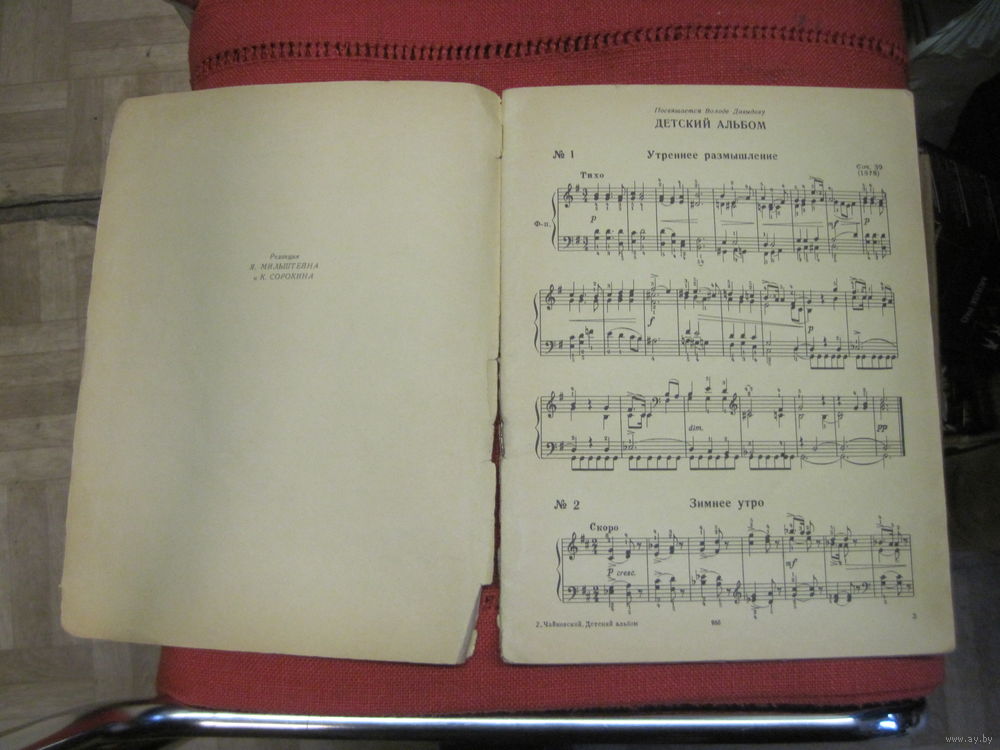 Редакция
Я. МИЛЬШТЕЙНА
и К. СОРОКИНА
Посвящается Володе Давыдову
ДЕТСКИЙ АЛЬБОМ
№ 1 Утреннее размышление
Соч. 39
(1878)
Тихо
Ф-п.
p
sf p
f
p
dim.
pp
№ 2 Зимнее утро
Скоро
p cresc.
mf
2. Чайковский. Детский альбом
3
www.ay.by